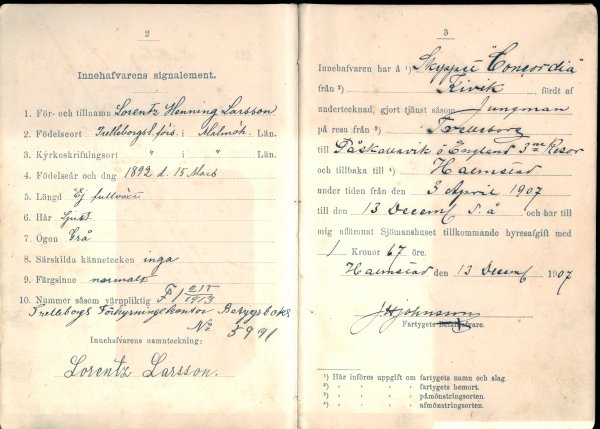 2
Innehafvarens signalement.
1. För- och tillnamn Lorentz Henning Larsson
2. Födelseort Trelleborgs förs. i Malmöh. Län.
3. Kyrkoskrifningsort " i " Län.
4. Födelseår och dag 1892 d. 15 Mars
5. Längd Ej fullväxt
6. Hår Ljust
7. Ögon Grå
8. Särskilda kännetecken inga
9. Färgsinne normalt
10. Nummer såsom värnpliktig F 1 215/1913
Trelleborgs Förhyrningskontor Betygsboks
No 5991
Innehafvarens namnteckning:
Lorentz Larsson.
3
Innehafvaren har å ¹) Skeppet "Concordia"
från ²) Kivik, fördt af
undertecknad, gjort tjänst såsom Jungman
på resa från ³) Trelleborg
till Påskallavik o England 3ne Resor
och tillbaka till ⁴) Halmstad
under tiden från den 3 April 1907
till den 13 Decemb s. å och har till
mig aflämnat Sjömanshuset tillkommande hyresafgift med
1 Kronor 67 öre.
Halmstad den 13 Decemb 1907
JHJohnsson
Fartygets befälhafvare.
¹) Här införes uppgift om fartygets namn och slag.
²) " " " " fartygets hemort.
³) " " " " påmönstringsorten.
⁴) " " " " afmönstringsorten.